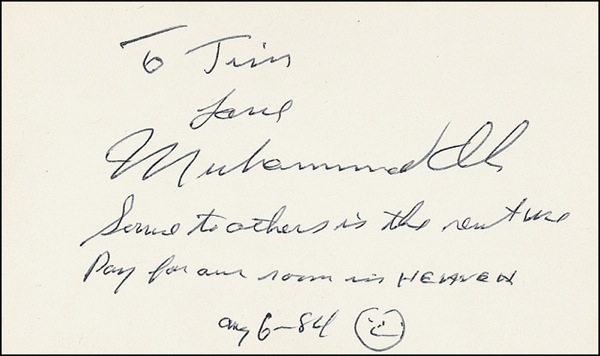 To Jim
Love
Muhammad Ali
Serve to others is the rent we
Pay for our room in HEAVEN
Aug 6-84